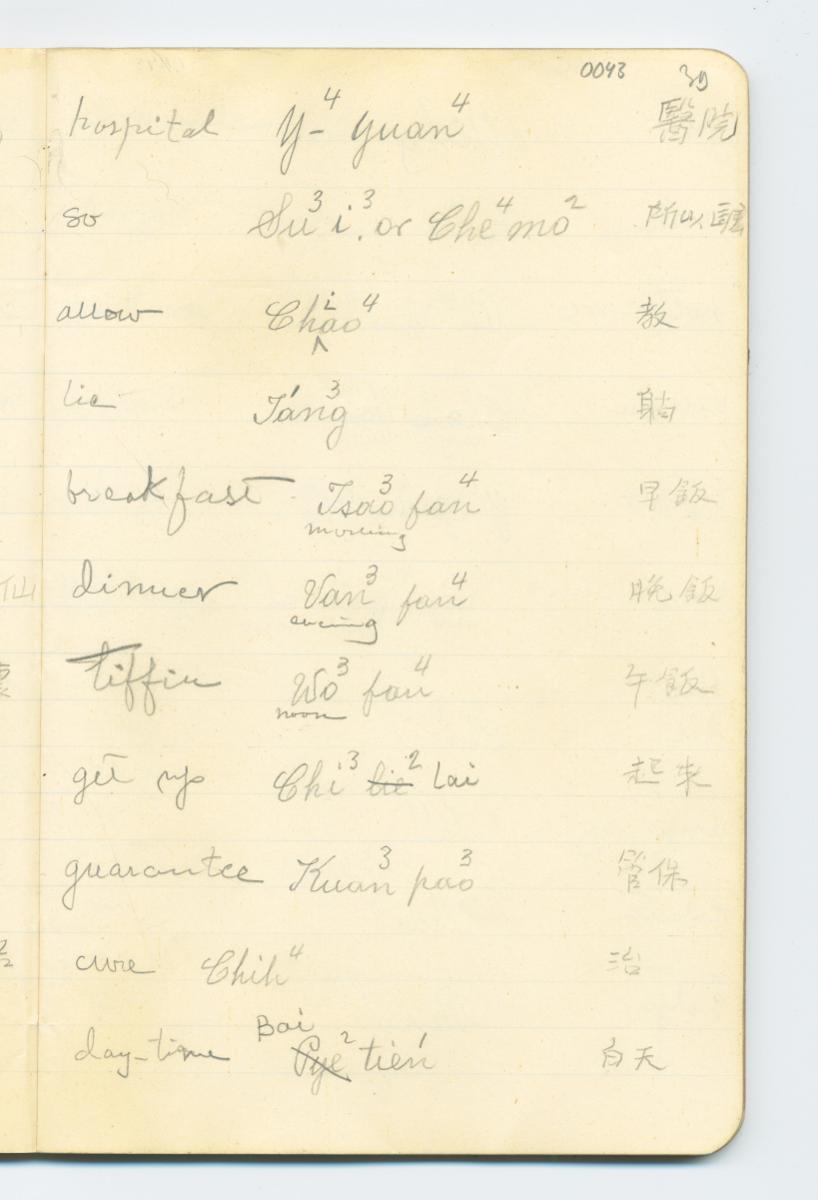 0043 39
hospital Y-⁴ yuan⁴ 醫院
so Su³ i³. or Che⁴ mo² 所以
allow Chiao⁴ 教
lie Táng³ 躺
breakfast Tsao³ fan⁴ 早飯
morning
dinner Van³ fan⁴ 晚飯
evening
tiffin Wo³ fan⁴ 午飯
noon
get up Chi³ lie² Lai 起来
guarantee Kuan³ pao³ 管保
cure Chih⁴ 治
Bai
day-time Pye² tien 白天